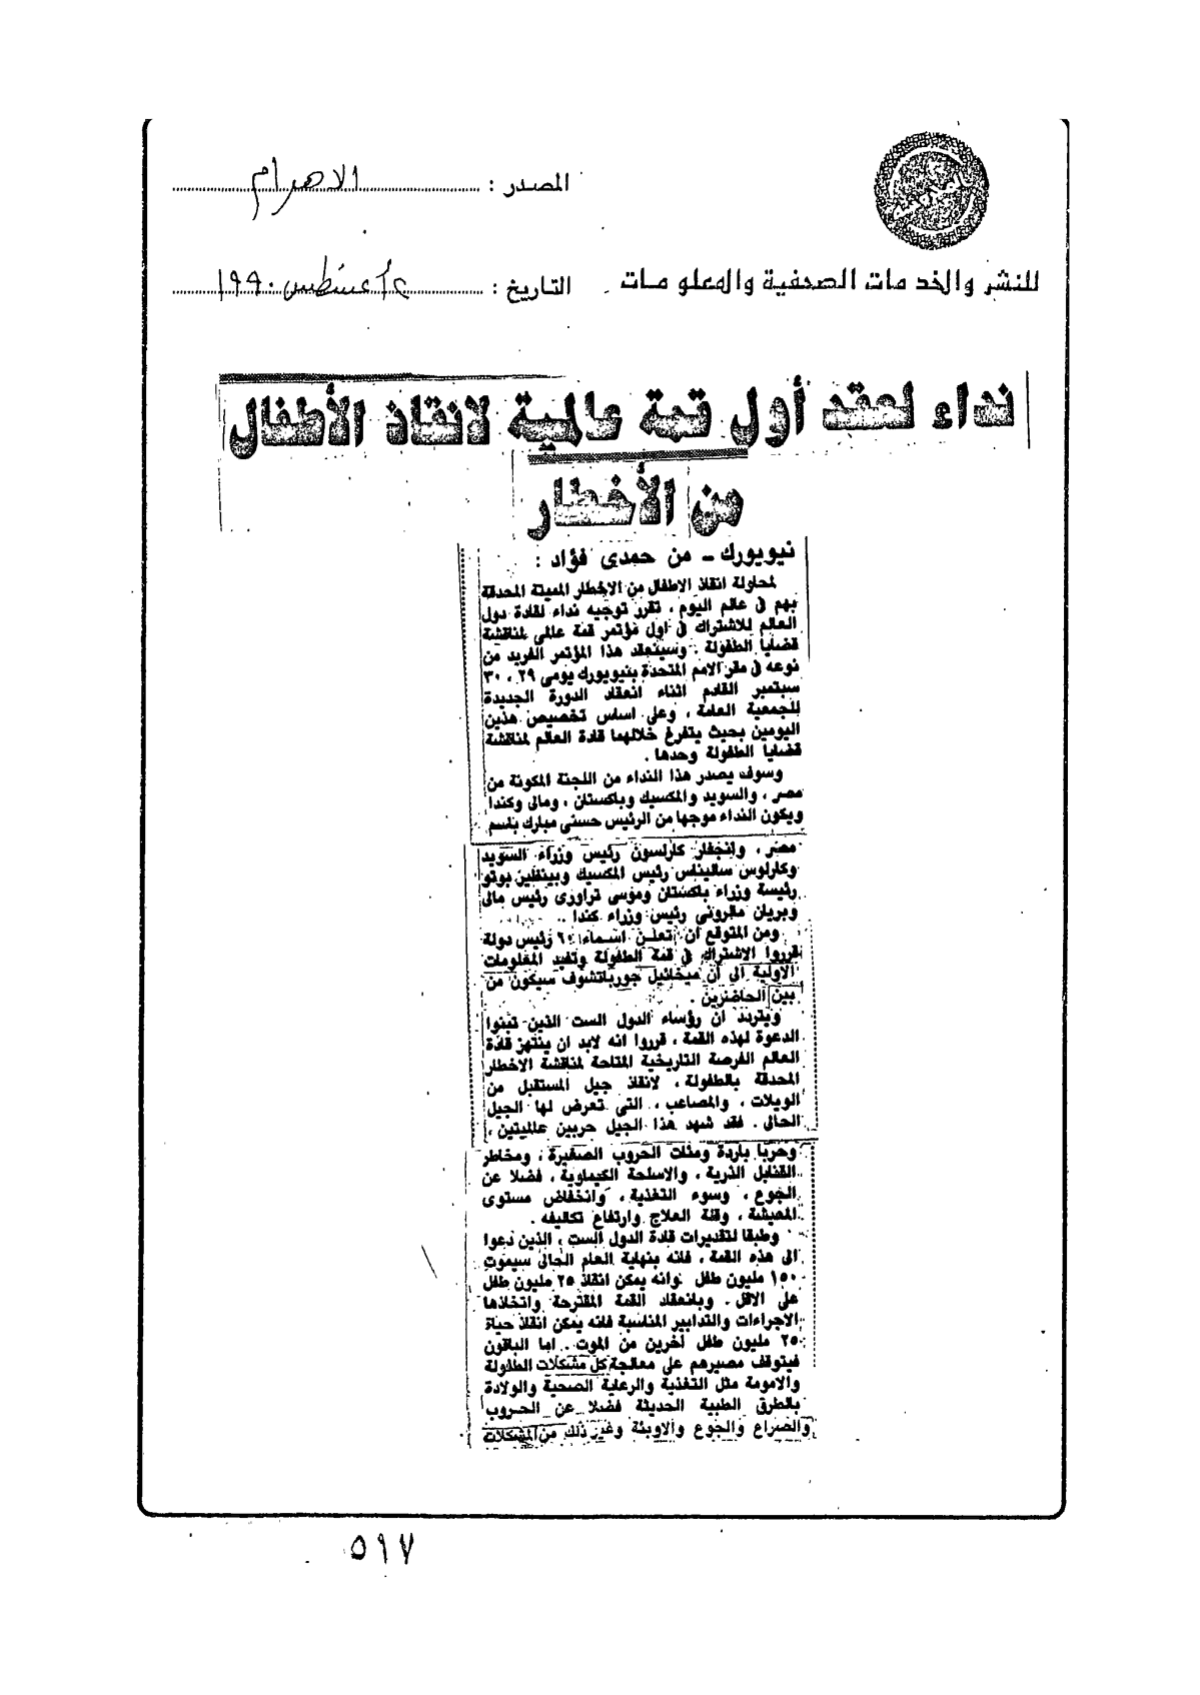 المصدر : الاهرام
للنشر والخدمات الصحفية والمعلومات
التاريخ : أغسطس ١٩٩٠
نداء لعقد أول قمة عالمية لانقاذ الأطفال
من الأخطار
نيويورك ـ من حمدى فؤاد :
لمحاولة انقاذ الاطفال من الاخطار المميتة المحدقة
بهم فى عالم اليوم ، تقرر توجيه نداء لقادة دول
العالم للاشتراك فى اول مؤتمر قمة عالمى لمناقشة
قضايا الطفولة . وسينعقد هذا المؤتمر الفريد من
نوعه فى مقر الامم المتحدة بنيويورك يومى ٢٩ ، ٣٠
سبتمبر القادم اثناء انعقاد الدورة الجديدة
للجمعية العامة ، وعلى اساس تخصيص هذين
اليومين بحيث يتفرغ خلالهما قادة العالم لمناقشة
قضايا الطفولة وحدها .
وسوف يصدر هذا النداء من اللجنة المكونة من
مصر ، والسويد والمكسيك وباكستان ، ومالى وكندا
ويكون النداء موجها من الرئيس حسنى مبارك باسم
مصر ، وانجفار كارلسون رئيس وزراء السويد
وكارلوس ساليناس رئيس المكسيك وبينظير بوتو
رئيسة وزراء باكستان وموسى تراورى رئيس مالى
وبريان مالرونى رئيس وزراء كندا ..
ومن المتوقع ان تعلن اسماء ٦٠ رئيس دولة
قرروا الاشتراك فى قمة الطفولة وتفيد المعلومات
الاولية الى ان ميخائيل جورباتشوف سيكون من
بين الحاضرين .
ويتردد ان رؤساء الدول الست الذين تبنوا
الدعوة لهذه القمة ، قرروا انه لابد ان ينتهز قادة
العالم الفرصة التاريخية المتاحة لمناقشة الاخطار
المحدقة بالطفولة ، لانقاذ جيل المستقبل من
الويلات ، والمصاعب ، التى تعرض لها الجيل
الحالى . فقد شهد هذا الجيل حربين عالميتين ،
وحربا باردة ومئات الحروب الصغيرة ، ومخاطر
القنابل الذرية ، والاسلحة الكيماوية ، فضلا عن
الجوع ، وسوء التغذية ، وانخفاض مستوى
المعيشة ، وقلة العلاج وارتفاع تكاليفه .
وطبقا لتقديرات قادة الدول الست ، الذين دعوا
الى هذه القمة ، فانه بنهاية العام الحالى سيموت
١٥٠ مليون طفل وانه يمكن انقاذ ٢٥ مليون طفل
على الاقل . وبانعقاد القمة المقترحة واتخاذها
الاجراءات والتدابير المناسبة فانه يمكن انقاذ حياة
٢٥ مليون طفل آخرين من الموت .. اما الباقون
فيتوقف مصيرهم على معالجة كل مشكلات الطفولة
والامومة مثل التغذية والرعاية الصحية والولادة
بالطرق الطبية الحديثة فضلا عن الحروب
والصراع والجوع والاوبئة وغير ذلك من المشكلات
٥١٧